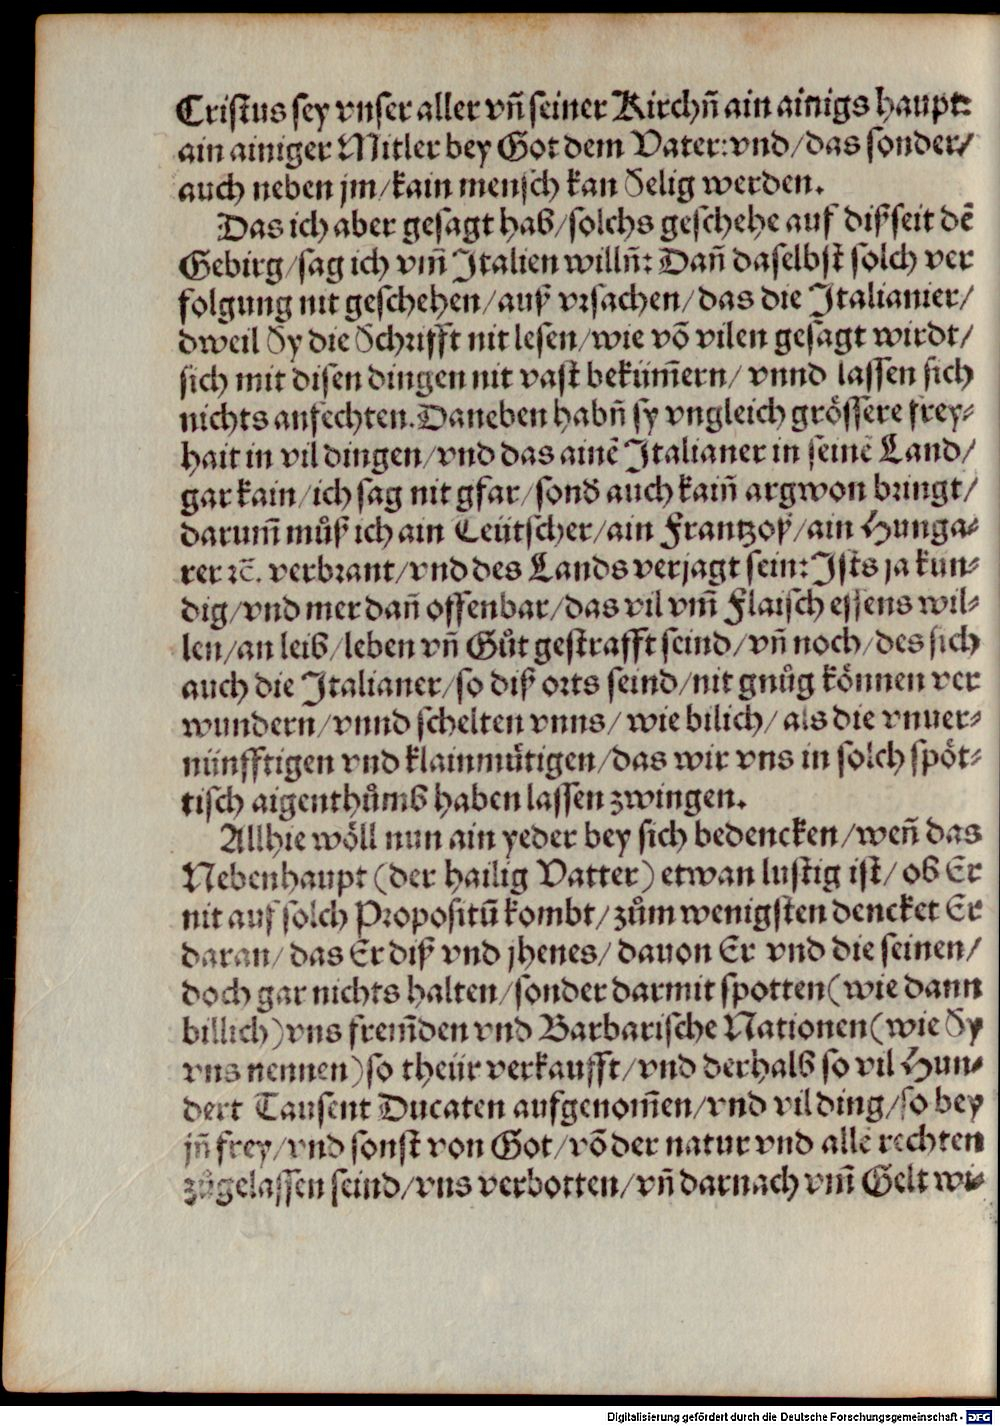 Cristus sey vnser aller vñ seiner Kirchñ ain ainigs haupt:
ain ainiger Mitler bey Got dem Vater: vnd/das sonder/
auch neben jm/kain mensch kan Selig werden.
Das ich aber gesagt hab/solchs geschehe auf dißseit dẽ
Gebirg/sag ich vm̃ Italien willñ: Dañ daselbst solch ver
folgung nit geschehen/auß vrsachen/das die Italianier/
dweil Sy die Schrifft nit lesen/wie võ vilen gesagt wirdt/
sich mit disen dingen nit vast beküm̃ern/ vnnd lassen sich
nichts anfechten. Daneben habñ sy vngleich grössere frey-
hait in vil dingen/vnd das ainẽ Italianer in seinẽ Land/
gar kain/ich sag nit gfar/sond auch kaiñ argwon bringt/
darum̃ můß ich ain Teütscher/ain Frantzoß/ain Hunga-
rer ꝛc̃. verbrant/vnd des Lands verjagt sein: Ists ja kun-
dig/vnd mer dañ offenbar/das vil vm̃ Flaisch essens wil-
len/an leib/leben vñ Gůt gestrafft seind/vñ noch/des sich
auch die Italianer/so diß orts seind/nit gnůg können ver
wundern/vnnd schelten vnns/ wie bilich/ als die vnuer-
nünfftigen vnd klainmütigen/das wir vns in solch spöt-
tisch aigenthůmb haben lassen zwingen.
Allhie wöll nun ain yeder bey sich bedencken/weñ das
Nebenhaupt (der hailig Vatter) etwan lustig ist/ ob Er
nit auf solch Propositũ kombt/zům wenigsten dencket Er
daran/ das Er diß vnd jhenes/ dauon Er vnd die seinen/
doch gar nichts halten/sonder darmit spotten (wie dann
billich) vns frem̃den vnd Barbarische Nationen (wie Sy
vns nennen) so theür verkaufft/vnd derhalb so vil Hun-
dert Tausent Ducaten aufgenom̃en/vnd vil ding/so bey
jñ frey/vnd sonst von Got/võ der natur vnd allẽ rechten
zůgelassen seind/vns verbotten/vñ darnach vm̃ Gelt wi-
Digitalisierung gefördert durch die Deutsche Forschungsgemeinschaft - DFG